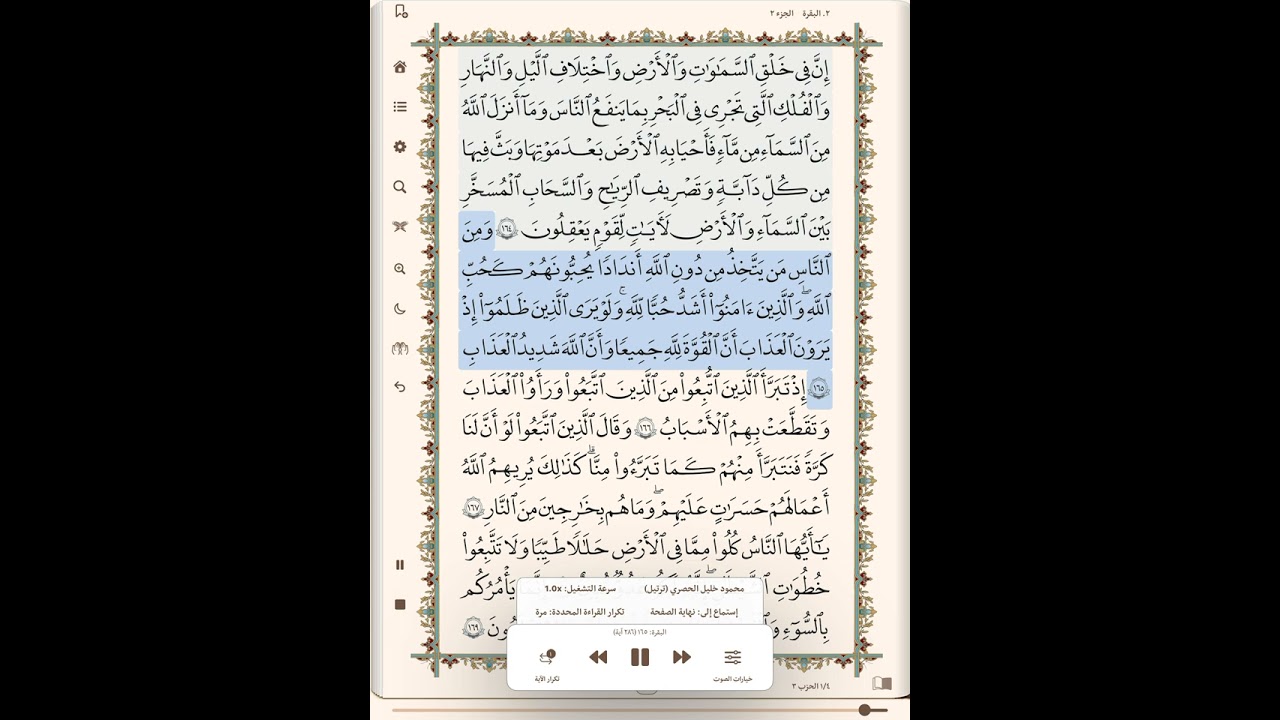 ٢. البقرة الجزء ٢
إِنَّ فِى خَلْقِ ٱلسَّمَٰوَٰتِ وَٱلْأَرْضِ وَٱخْتِلَٰفِ ٱلَّيْلِ وَٱلنَّهَارِ
وَٱلْفُلْكِ ٱلَّتِى تَجْرِى فِى ٱلْبَحْرِ بِمَا يَنفَعُ ٱلنَّاسَ وَمَآ أَنزَلَ ٱللَّهُ
مِنَ ٱلسَّمَآءِ مِن مَّآءٍ فَأَحْيَا بِهِ ٱلْأَرْضَ بَعْدَ مَوْتِهَا وَبَثَّ فِيهَا
مِن كُلِّ دَآبَّةٍ وَتَصْرِيفِ ٱلرِّيَٰحِ وَٱلسَّحَابِ ٱلْمُسَخَّرِ
بَيْنَ ٱلسَّمَآءِ وَٱلْأَرْضِ لَءَايَٰتٍ لِّقَوْمٍ يَعْقِلُونَ ١٦٤ وَمِنَ
ٱلنَّاسِ مَن يَتَّخِذُ مِن دُونِ ٱللَّهِ أَندَادًا يُحِبُّونَهُمْ كَحُبِّ
ٱللَّهِ ۖ وَٱلَّذِينَ ءَامَنُوٓا۟ أَشَدُّ حُبًّا لِّلَّهِ ۗ وَلَوْ يَرَى ٱلَّذِينَ ظَلَمُوٓا۟ إِذْ
يَرَوْنَ ٱلْعَذَابَ أَنَّ ٱلْقُوَّةَ لِلَّهِ جَمِيعًا وَأَنَّ ٱللَّهَ شَدِيدُ ٱلْعَذَابِ
١٦٥ إِذْ تَبَرَّأَ ٱلَّذِينَ ٱتُّبِعُوا۟ مِنَ ٱلَّذِينَ ٱتَّبَعُوا۟ وَرَأَوُا۟ ٱلْعَذَابَ
وَتَقَطَّعَتْ بِهِمُ ٱلْأَسْبَابُ ١٦٦ وَقَالَ ٱلَّذِينَ ٱتَّبَعُوا۟ لَوْ أَنَّ لَنَا
كَرَّةً فَنَتَبَرَّأَ مِنْهُمْ كَمَا تَبَرَّءُوا۟ مِنَّا ۗ كَذَٰلِكَ يُرِيهِمُ ٱللَّهُ
أَعْمَٰلَهُمْ حَسَرَٰتٍ عَلَيْهِمْ ۖ وَمَا هُم بِخَٰرِجِينَ مِنَ ٱلنَّارِ ١٦٧
يَٰٓأَيُّهَا ٱلنَّاسُ كُلُوا۟ مِمَّا فِى ٱلْأَرْضِ حَلَٰلًا طَيِّبًا وَلَا تَتَّبِعُوا۟
خُطُوَٰتِ يَأْمُرُكُم
بِٱلسُّوٓءِ ١٦٩
محمود خليل الحصري (ترتيل) سرعة التشغيل: 1.0x
إستماع إلى: نهاية الصفحة تكرار القراءة المحددة: مرة
البقرة: ١٦٥ (٢٨٦ آية)
خيارات الصوت تكرار الآية
١/٤ الحزب ٣